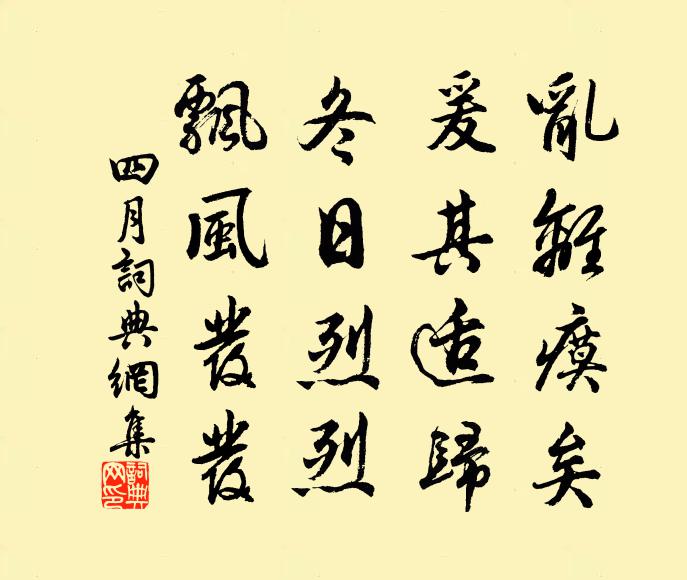 亂離瘼矣
爰其适歸
冬日烈烈
飄風發發
四月詞典網集
詞典网印